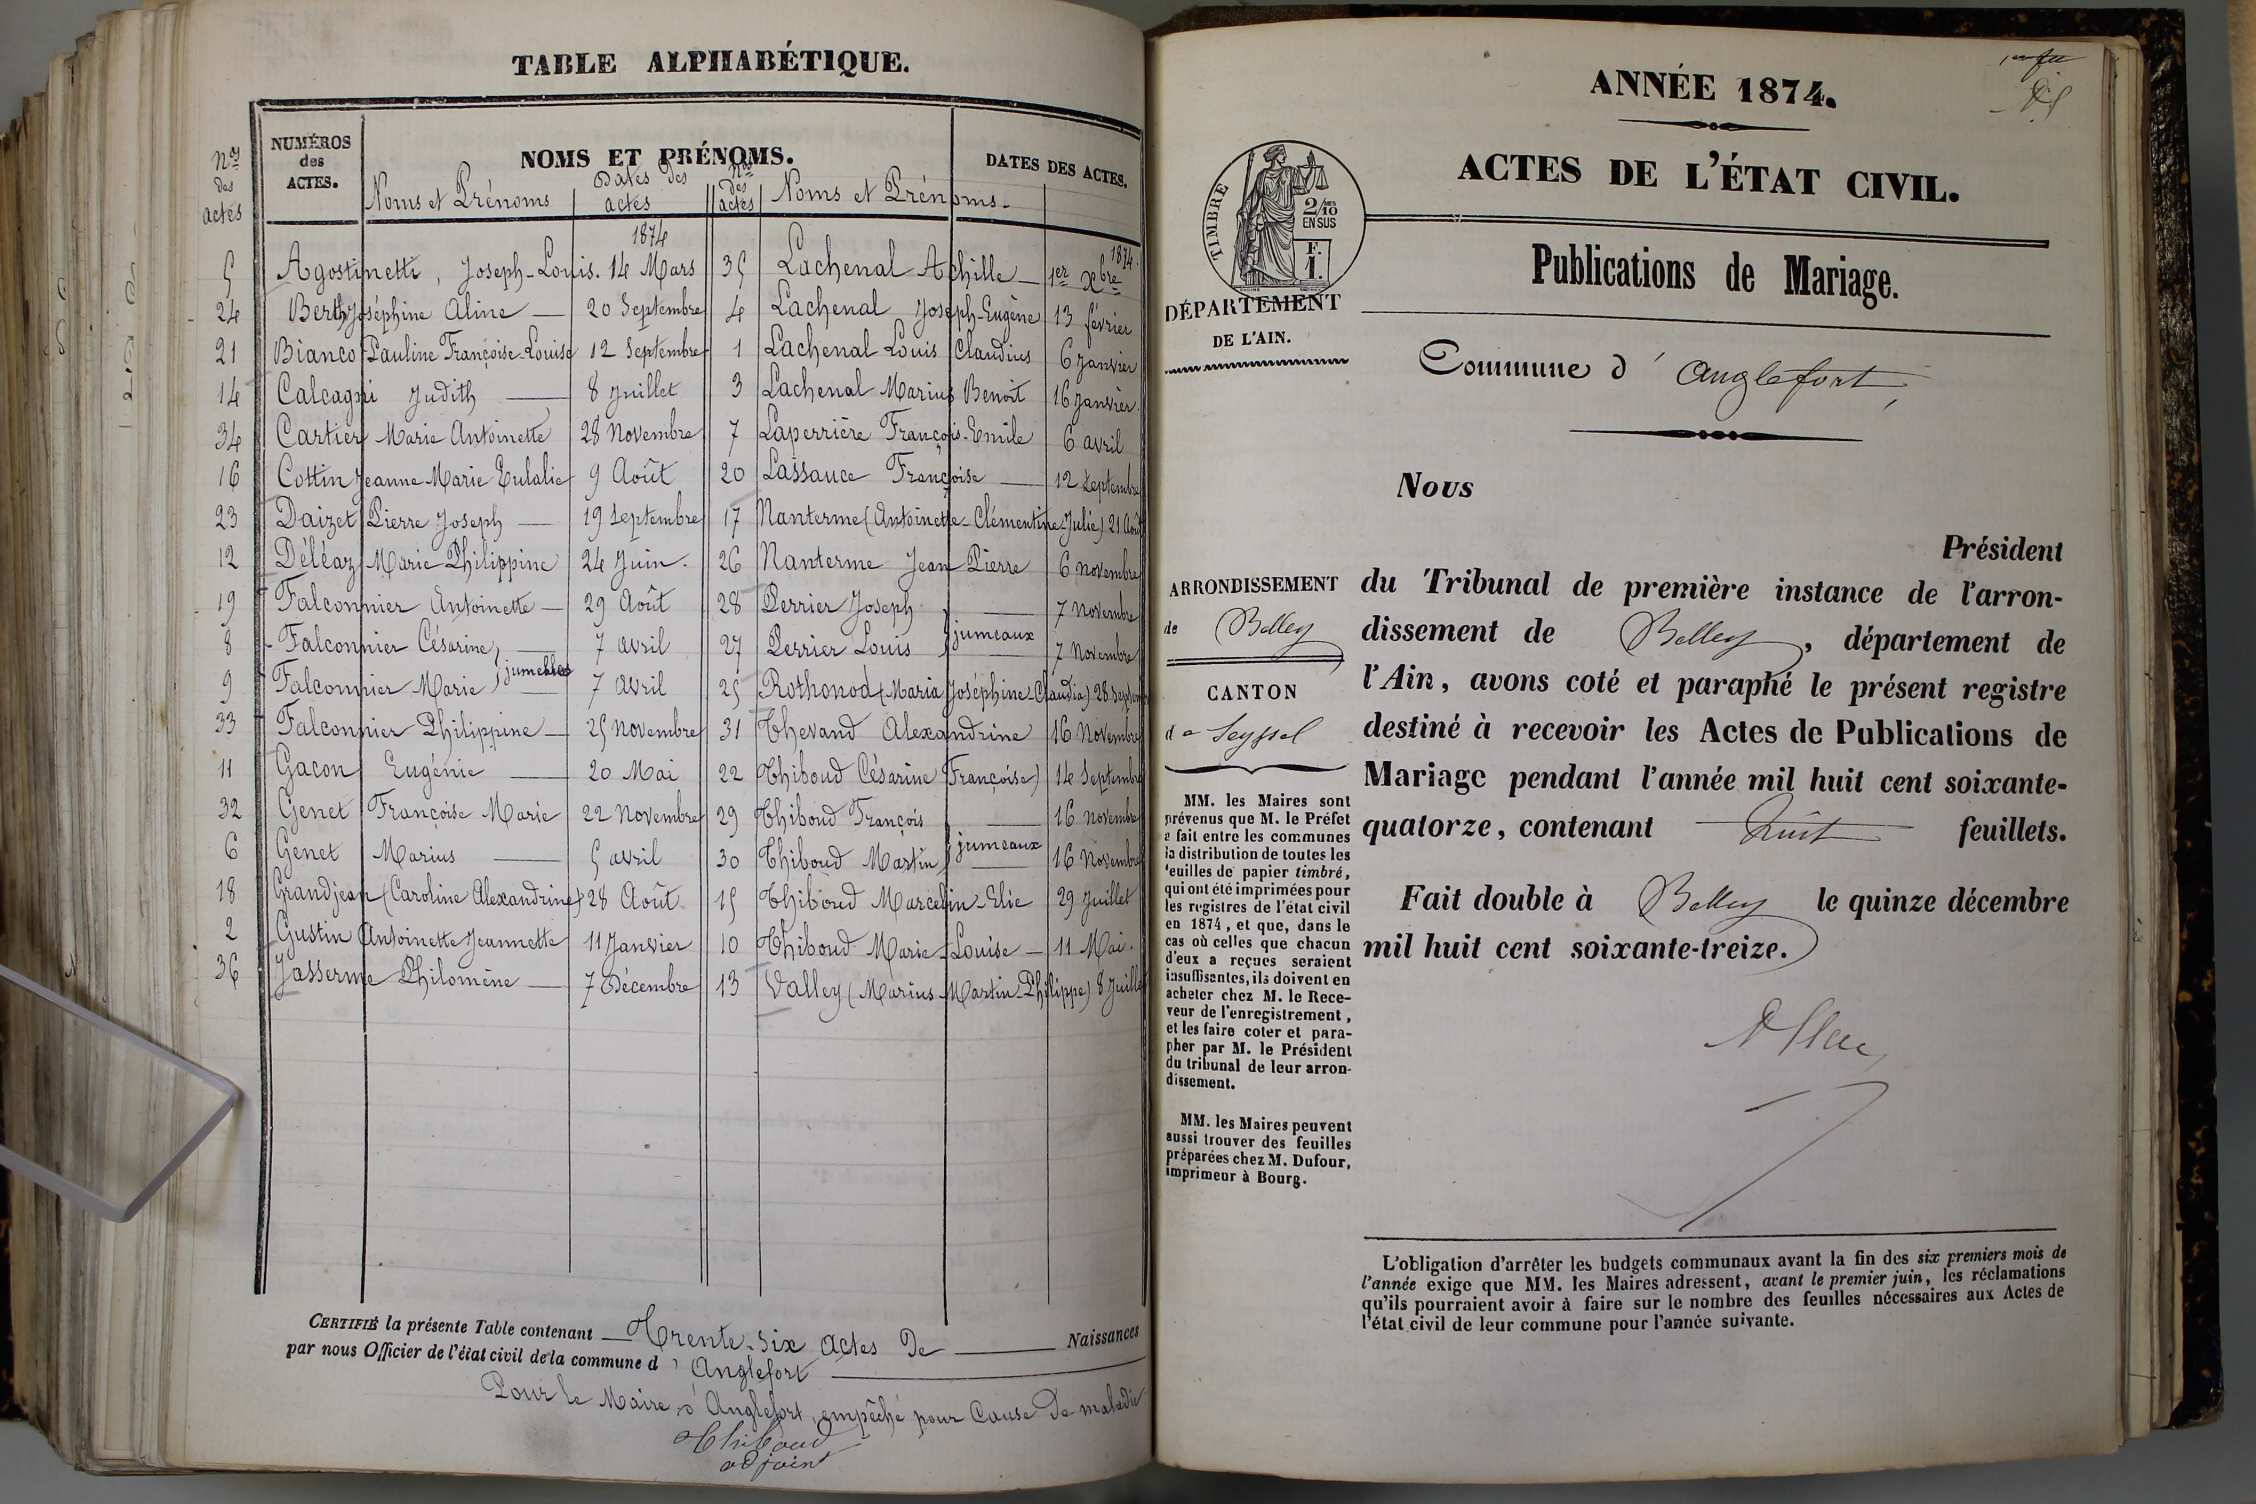 TABLE ALPHABÉTIQUE.
Nos des actes
NUMÉROS des ACTES.
NOMS ET PRÉNOMS.
DATES DES ACTES.
Noms et Prénoms
Dates des actes
Nos des actes
Noms et Prénoms.
1874
1874.
5 Agostinetti, Joseph-Louis. 14 Mars
24 Berthy Joséphine Aline — 20 Septembre
21 Bianco Pauline Françoise-Louise 12 Septembre
14 Calcagni Judith — 8 Juillet
34 Cartier Marie Antoinette 28 Novembre
16 Cottin Jeanne Marie Eulalie 9 Août
23 Daizet Pierre Joseph — 19 Septembre
12 Déléaz Marie Philippine 24 Juin.
19 Falconnier Antoinette — 29 Août
8 Falconnier Césarine, — 7 avril
jumelles
9 Falconnier Marie — 7 avril
33 Falconnier Philippine — 25 Novembre
11 Gacon Eugénie — 20 Mai
32 Genet Françoise Marie 22 Novembre
6 Genet Marius — 5 avril
18 Grandjean (Caroline Alexandrine) 28 Août
2 Gustin Antoinette Jeannette 11 Janvier
36 Jasserme Philomène — 7 Décembre
35 Lachenal Achille — 1er Xbre
4 Lachenal Joseph-Eugène 13 février
1 Lachenal Louis Claudius 6 Janvier
3 Lachenal Marius Benoit 16 Janvier.
7 Laperrière François-Emile 6 avril
20 Lassauce Françoise — 12 Septembre
17 Nanterme (Antoinette-Clémentine-Julie) 21 Août
26 Nanterme Jean Pierre 6 novembre
28 Perrier Joseph — 7 novembre
jumeaux
27 Perrier Louis — 7 Novembre
25 Rothonod (Maria Joséphine-Claudia) 28 Septembre
31 Thevand Alexandrine 16 Novembre
22 Thiboud Césarine (Françoise) 14 Septembre
29 Thiboud François — 16 novembre
jumeaux
30 Thiboud Martin — 16 Novembre
15 Thiboud Marcelin-Elie 29 Juillet
10 Thiboud Marie-Louise — 11 Mai.
13 Valley (Marius-Martin-Philippe) 8 Juillet
CERTIFIÉ la présente Table contenant — Trente-six actes De — Naissances
par nous Officier de l'état civil de la commune d' Anglefort
Pour le Maire d'Anglefort, empêché pour Cause De maladie
Thiboud
adjoint
ANNÉE 1874.
ACTES DE L'ÉTAT CIVIL.
TIMBRE
2/10 MES
EN SUS
F.
1.
Publications de Mariage.
DÉPARTEMENT
DE L'AIN.
Commune d' Anglefort,
Nous
Président
du Tribunal de première instance de l'arron-
dissement de Belley, département de
l'Ain, avons coté et paraphé le présent registre
destiné à recevoir les Actes de Publications de
Mariage pendant l'année mil huit cent soixante-
quatorze, contenant — huit — feuillets.
Fait double à Belley le quinze décembre
mil huit cent soixante-treize.
ARRONDISSEMENT
de Belley
CANTON
de Seyssel
MM. les Maires sont
prévenus que M. le Préfet
a fait entre les communes
la distribution de toutes les
feuilles de papier timbré,
qui ont été imprimées pour
les registres de l'état civil
en 1874, et que, dans le
cas où celles que chacun
d'eux a reçues seraient
insuffisantes, ils doivent en
acheter chez M. le Rece-
veur de l'enregistrement,
et les faire coter et para-
pher par M. le Président
du tribunal de leur arron-
dissement.
MM. les Maires peuvent
aussi trouver des feuilles
préparées chez M. Dufour,
imprimeur à Bourg.
L'obligation d'arrêter les budgets communaux avant la fin des six premiers mois de
l'année exige que MM. les Maires adressent, avant le premier juin, les réclamations
qu'ils pourraient avoir à faire sur le nombre des feuilles nécessaires aux Actes de
l'état civil de leur commune pour l'année suivante.